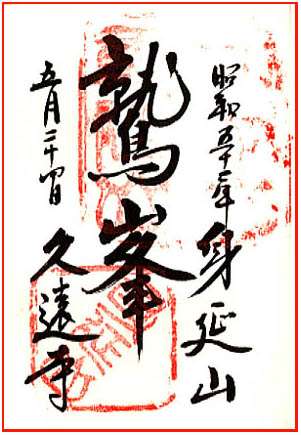 昭和五十二年 身延山
鷲峯
五月二十四日 久遠寺